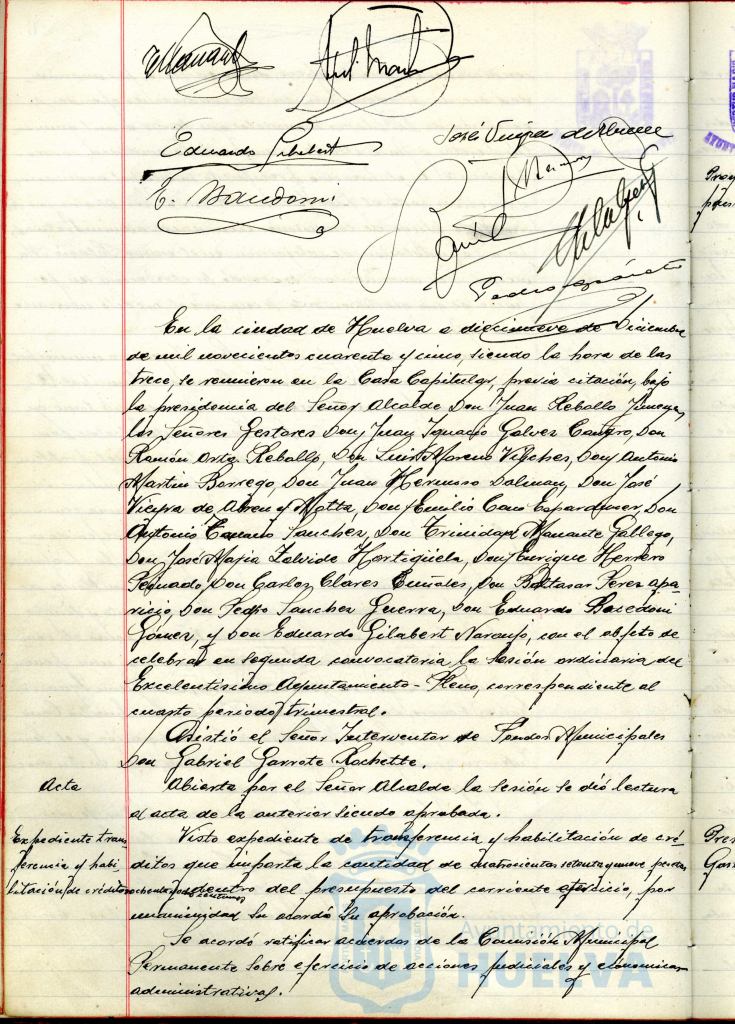 Eduardo Gilabert
José Vieyra de Abreu
E. Bacedoni
Pedro
En la ciudad de Huelva a diecinueve de Diciembre
de mil novecientos cuarenta y cinco, siendo la hora de las
trece, se reunieron en la Casa Capitular, previa citación, bajo
la presidencia del Señor Alcalde Don Juan Rebollo Jimenez,
los Señores Gestores Don Juan Ignacio Galvez Cañero, Don
Ramón Ortiz Rebollo, Don Luis Moreno Vilches, Don Antonio
Martin Borrego, Don Juan Hermoso Dolman, Don José
Vieyra de Abreu y Motta, Don Emilio Cano Esparducer, Don
Antonio Sanchez, Don Trinidad Manante Gallego,
Don José Maria Zalvide Hortigüela, Don Enrique Herrero
Peguado, Don Carlos Clares Don Baltasar Perez Apa-
ricio, Don Pedro Sanchez Guerra, Don Eduardo Bacedoni
Gómez, y Don Eduardo Gilabert Naranjo, con el objeto de
celebrar en segunda convocatoria la sesión ordinaria del
Excelentísimo Ayuntamiento-Pleno, correspondiente al
cuarto periodo trimestral.
Asistió el Señor Interventor de Fondos Municipales
Don Gabriel Garrote Rochette.
Acta
Abierta por el Señor Alcalde la sesión se dió lectura
al acta de la anterior siendo aprobada.
Expediente trans-
ferencia y habi-
litación de créditos
Visto expediente de transferencia y habilitación de cré-
ditos que importa la cantidad de cuatrocientas setenta y nueve pesetas
ochenta y dos centimos dentro del presupuesto del corriente ejercicio, por
unanimidad se acordó su aprobación.
Se acordó ratificar acuerdos de la Comisión Municipal
Permanente sobre ejercicio de acciones judiciales y económicas
administrativas.
Ayuntamiento de
HUELVA